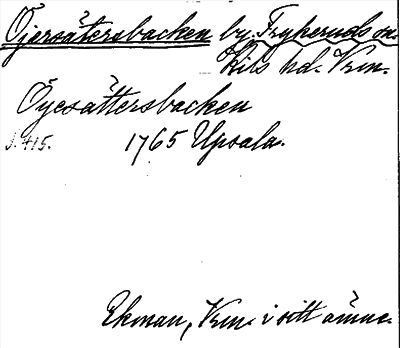 Öjersätersbacken by. Frykeruds sn.
Kils hd. Vrm.
Öyesättersbacken
s. 415. 1765 Upsala.
Ekman, Vrm. i sitt ämne.